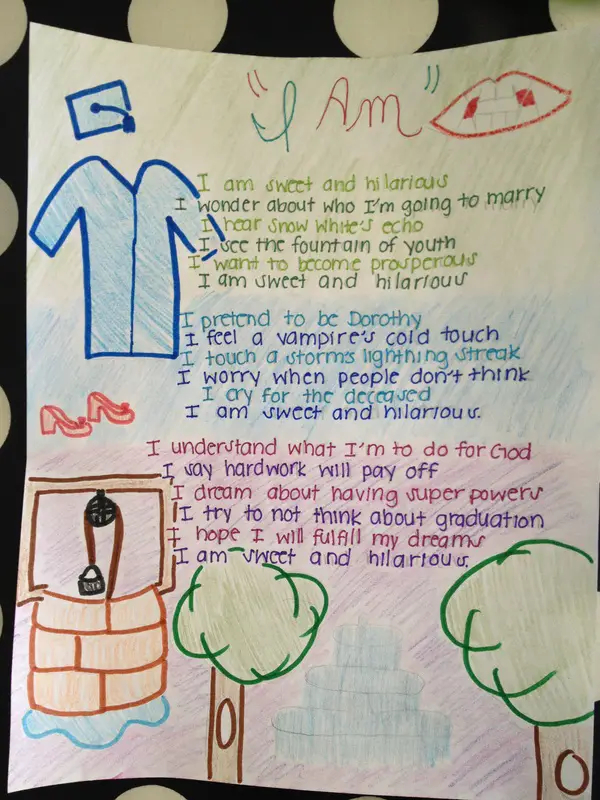 "I Am"
I am sweet and hilarious
I wonder about who I'm going to marry
I hear Snow White's echo
I see the fountain of youth
I want to become prosperous
I am sweet and hilarious
I pretend to be Dorothy
I feel a vampire's cold touch
I touch a storm's lightning streak
I worry when people don't think
I cry for the deceased
I am sweet and hilarious.
I understand what I'm to do for God
I say hardwork will pay off
I dream about having super powers
I try to not think about graduation
I hope I will fulfill my dreams
I am sweet and hilarious.